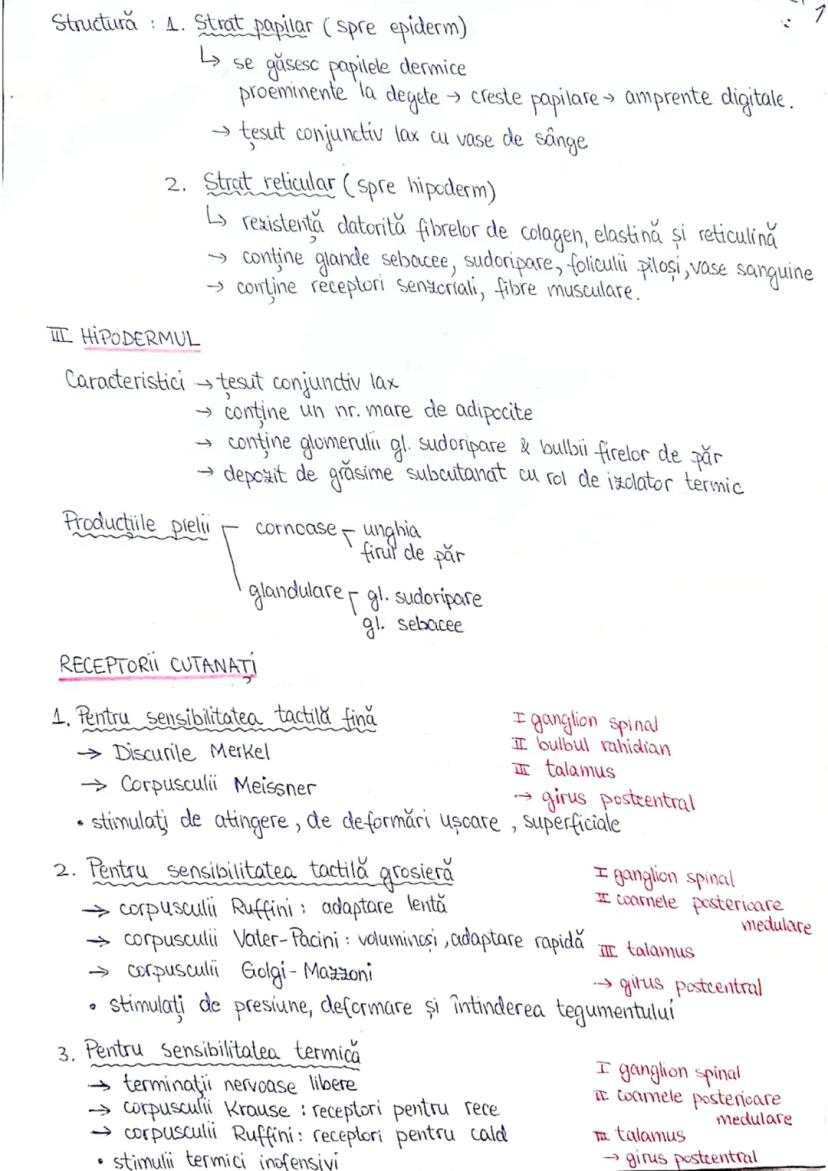 Structură : 1. Strat papilar (spre epiderm)
1
↳ se găsesc papilele dermice
proeminente la degete → creste papilare → amprente digitale.
→ țesut conjunctiv lax cu vase de sânge
2. Strat reticular (spre hipoderm)
↳ rezistență datorită fibrelor de colagen, elastină și reticulină
→ conține glande sebacee, sudoripare, foliculii piloși, vase sanguine
→ conține receptori senzoriali, fibre musculare.
III HIPODERMUL
Caracteristici → țesut conjunctiv lax
→ conține un nr. mare de adipocite
→ conține glomerulii gl. sudoripare & bulbii firelor de păr
→ depozit de grăsime subcutanat cu rol de izolator termic
Producțiile pielii
cornoase
unghia
firul de păr
glandulare
gl. sudoripare
gl. sebacee
RECEPTORII CUTANAȚI
1. Pentru sensibilitatea tactilă fină
I ganglion spinal
→ Discurile Merkel
II bulbul rahidian
→ Corpusculii Meissner
III talamus
→ girus postcentral
• stimulați de atingere, de deformări ușoare, superficiale
2. Pentru sensibilitatea tactilă grosieră
I ganglion spinal
→ corpusculii Ruffini : adaptare lentă
II coarnele posterioare
medulare
→ corpusculii Vater-Pacini : voluminoși, adaptare rapidă
III talamus
→ corpusculii Golgi-Mazzoni
→ girus postcentral
• stimulați de presiune, deformare și întinderea tegumentului
3. Pentru sensibilitatea termică
I ganglion spinal
→ terminații nervoase libere
II coarnele posterioare
medulare
→ corpusculii Krause : receptori pentru rece
→ corpusculii Ruffini : receptori pentru cald
III talamus
→ girus postcentral
• stimulii termici inofensivi